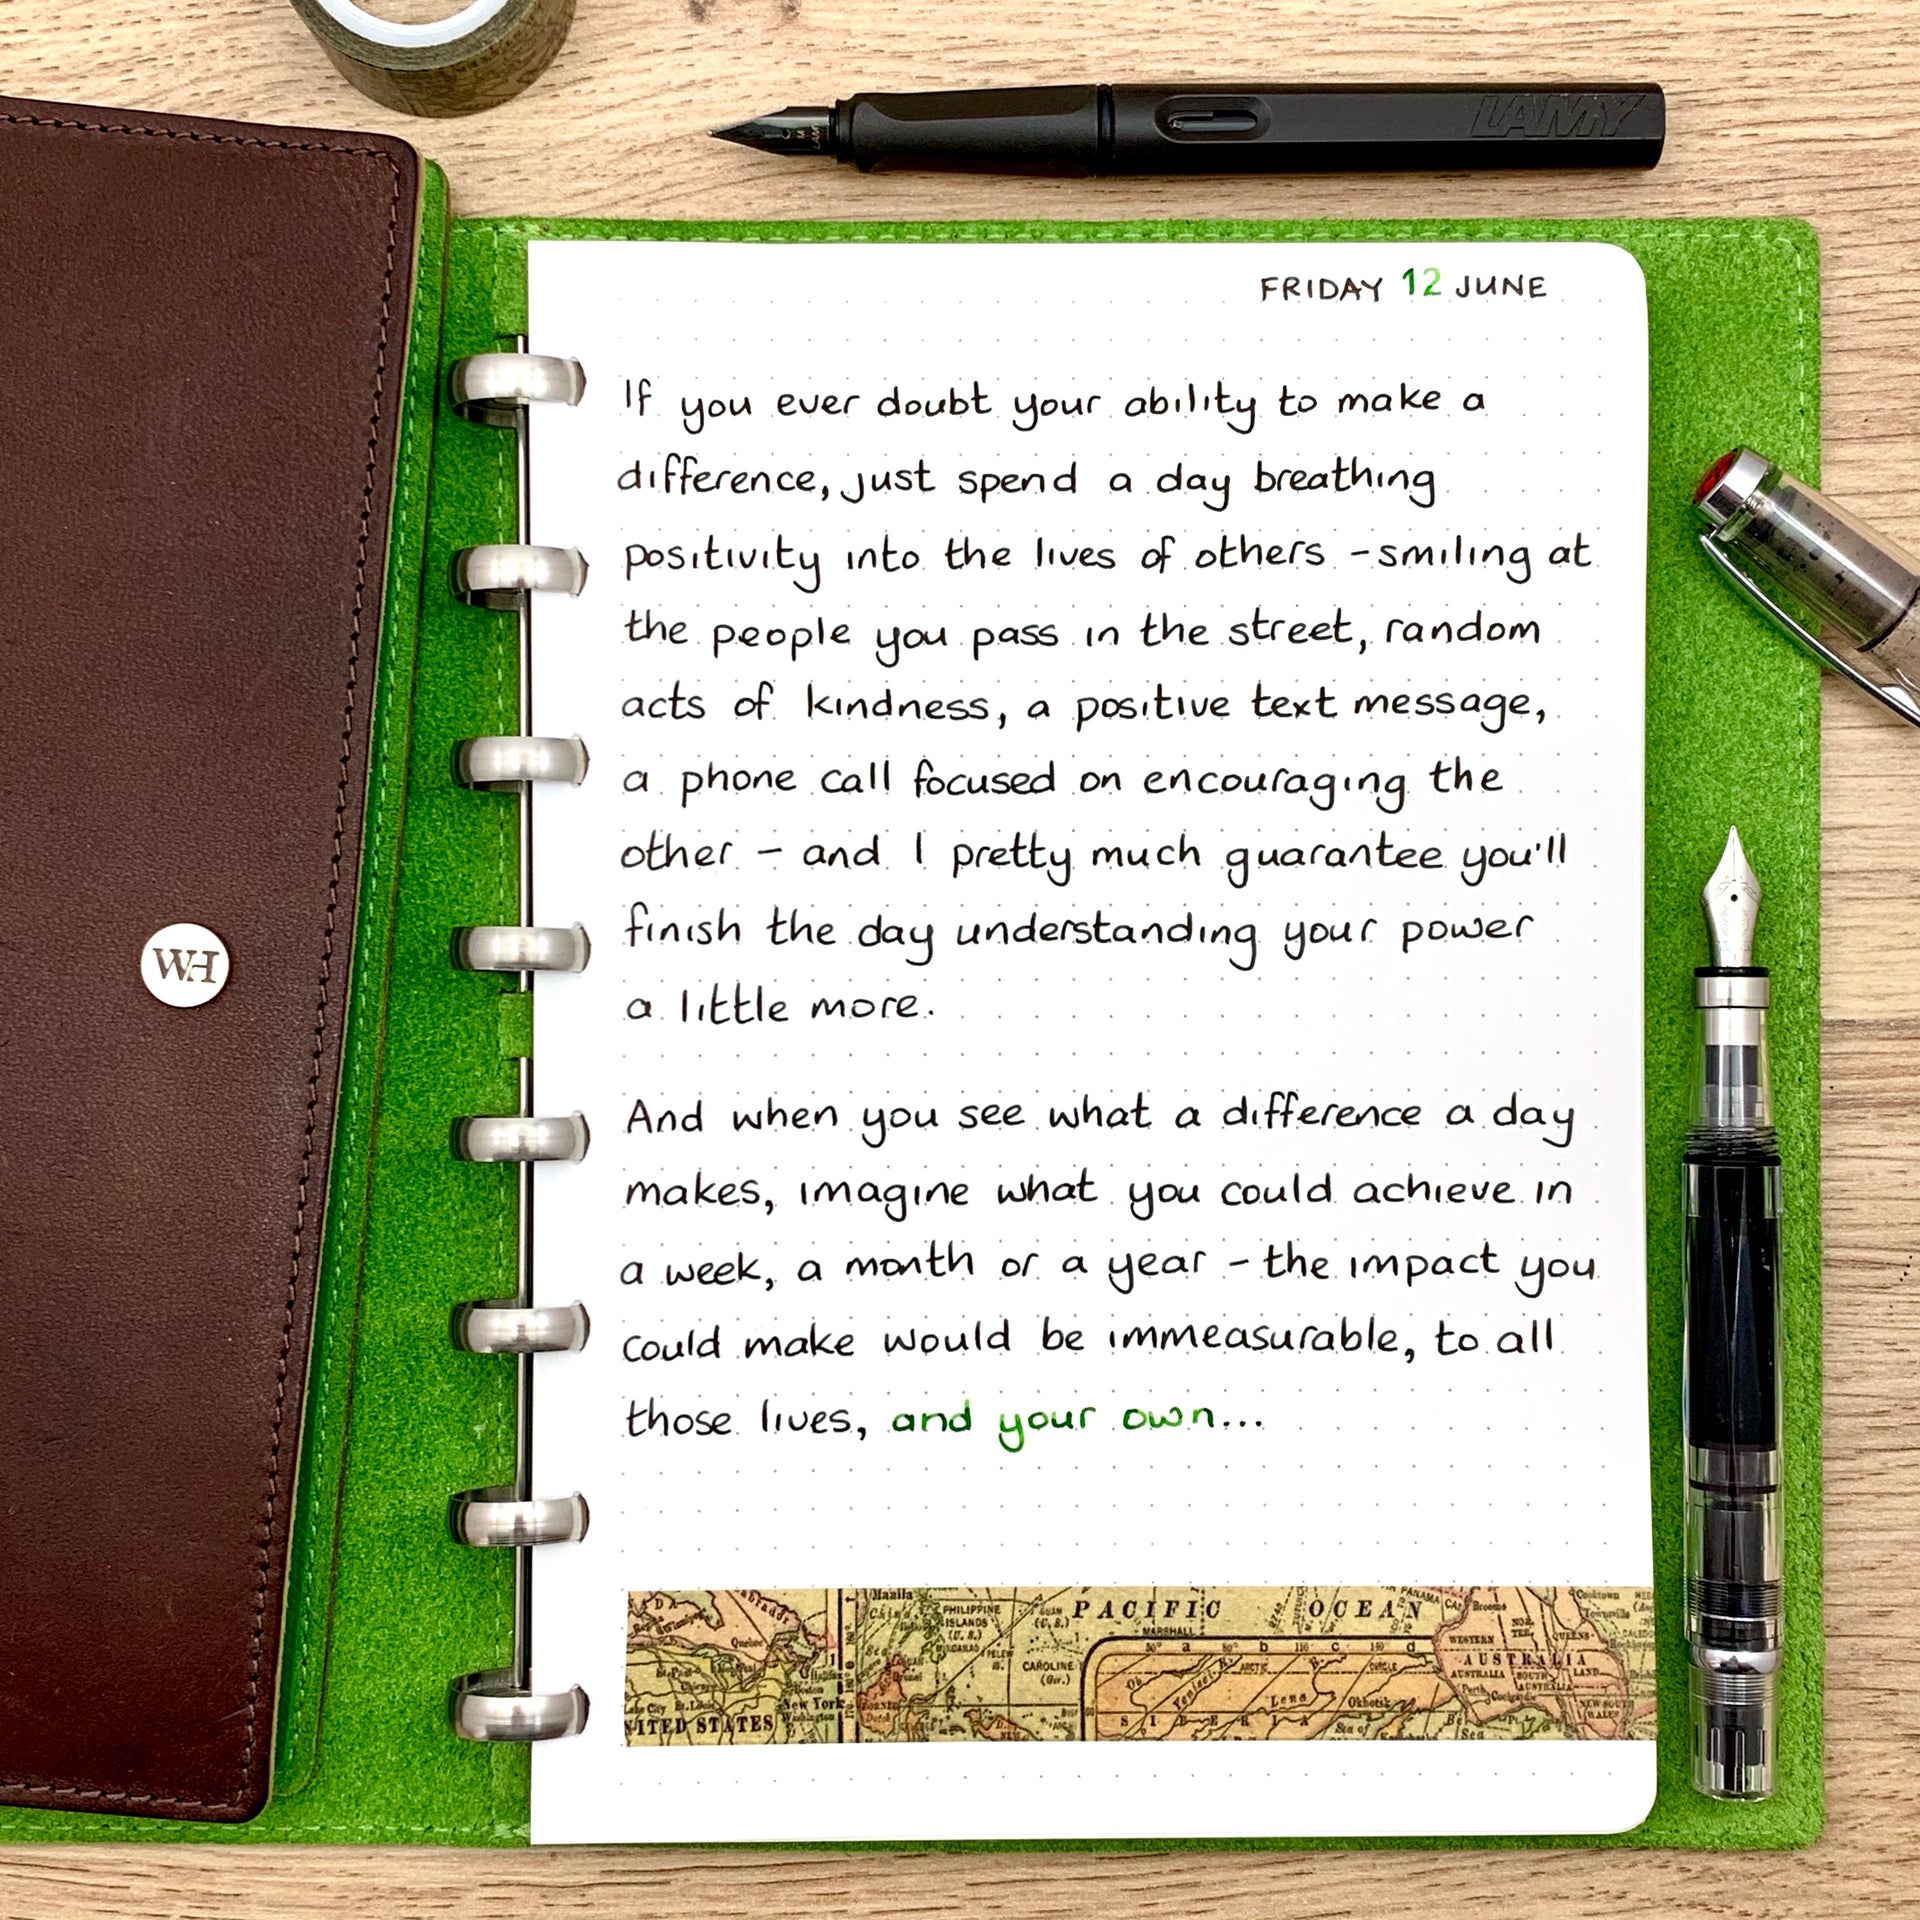 LAMY
M LAMY
FRIDAY 12 JUNE
If you ever doubt your ability to make a
difference, just spend a day breathing
positivity into the lives of others - smiling at
the people you pass in the street, random
acts of kindness, a positive text message,
a phone call focused on encouraging the
other - and I pretty much guarantee you'll
finish the day understanding your power
a little more.
And when you see what a difference a day
makes, imagine what you could achieve in
a week, a month or a year - the impact you
could make would be immeasurable, to all
those lives, and your own...
WH
Manila
PHILIPPINE
ISLANDS
(U. S.)
PACIFIC OCEAN
MARSHALL
CAROLINE
(Ger.)
Quebec
Halifax
Boston
New York
Washington
Chicago
St. Louis
UNITED STATES
50° a 80° b 110 c 140 d
ARCTIC CIRCLE
Ob
Yenisei R.
Lena
Okhotsk
SIBERIA
Sea of
WESTERN
AUSTRALIA
AUSTRALIA
SOUTH
AUSTRALIA
QUEENS-
LAND
NEW SOUTH
WALES
Perth
Coolgardie
Broome
Cooktown
Townsville